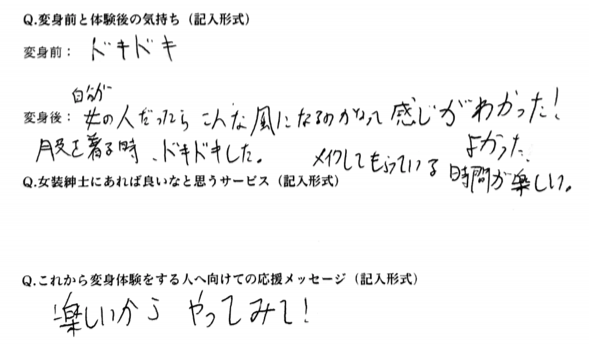 Q.変身前と体験後の気持ち（記入形式）
変身前： ドキドキ
自分が
変身後： 女の人だったらこんな風になるのかなって感じがわかった！
服を着る時、ドキドキした。 よかった、
メイクしてもらっている時間が楽しい。
Q.女装紳士にあれば良いなと思うサービス（記入形式）
Q.これから変身体験をする人へ向けての応援メッセージ（記入形式）
楽しいから やってみて！